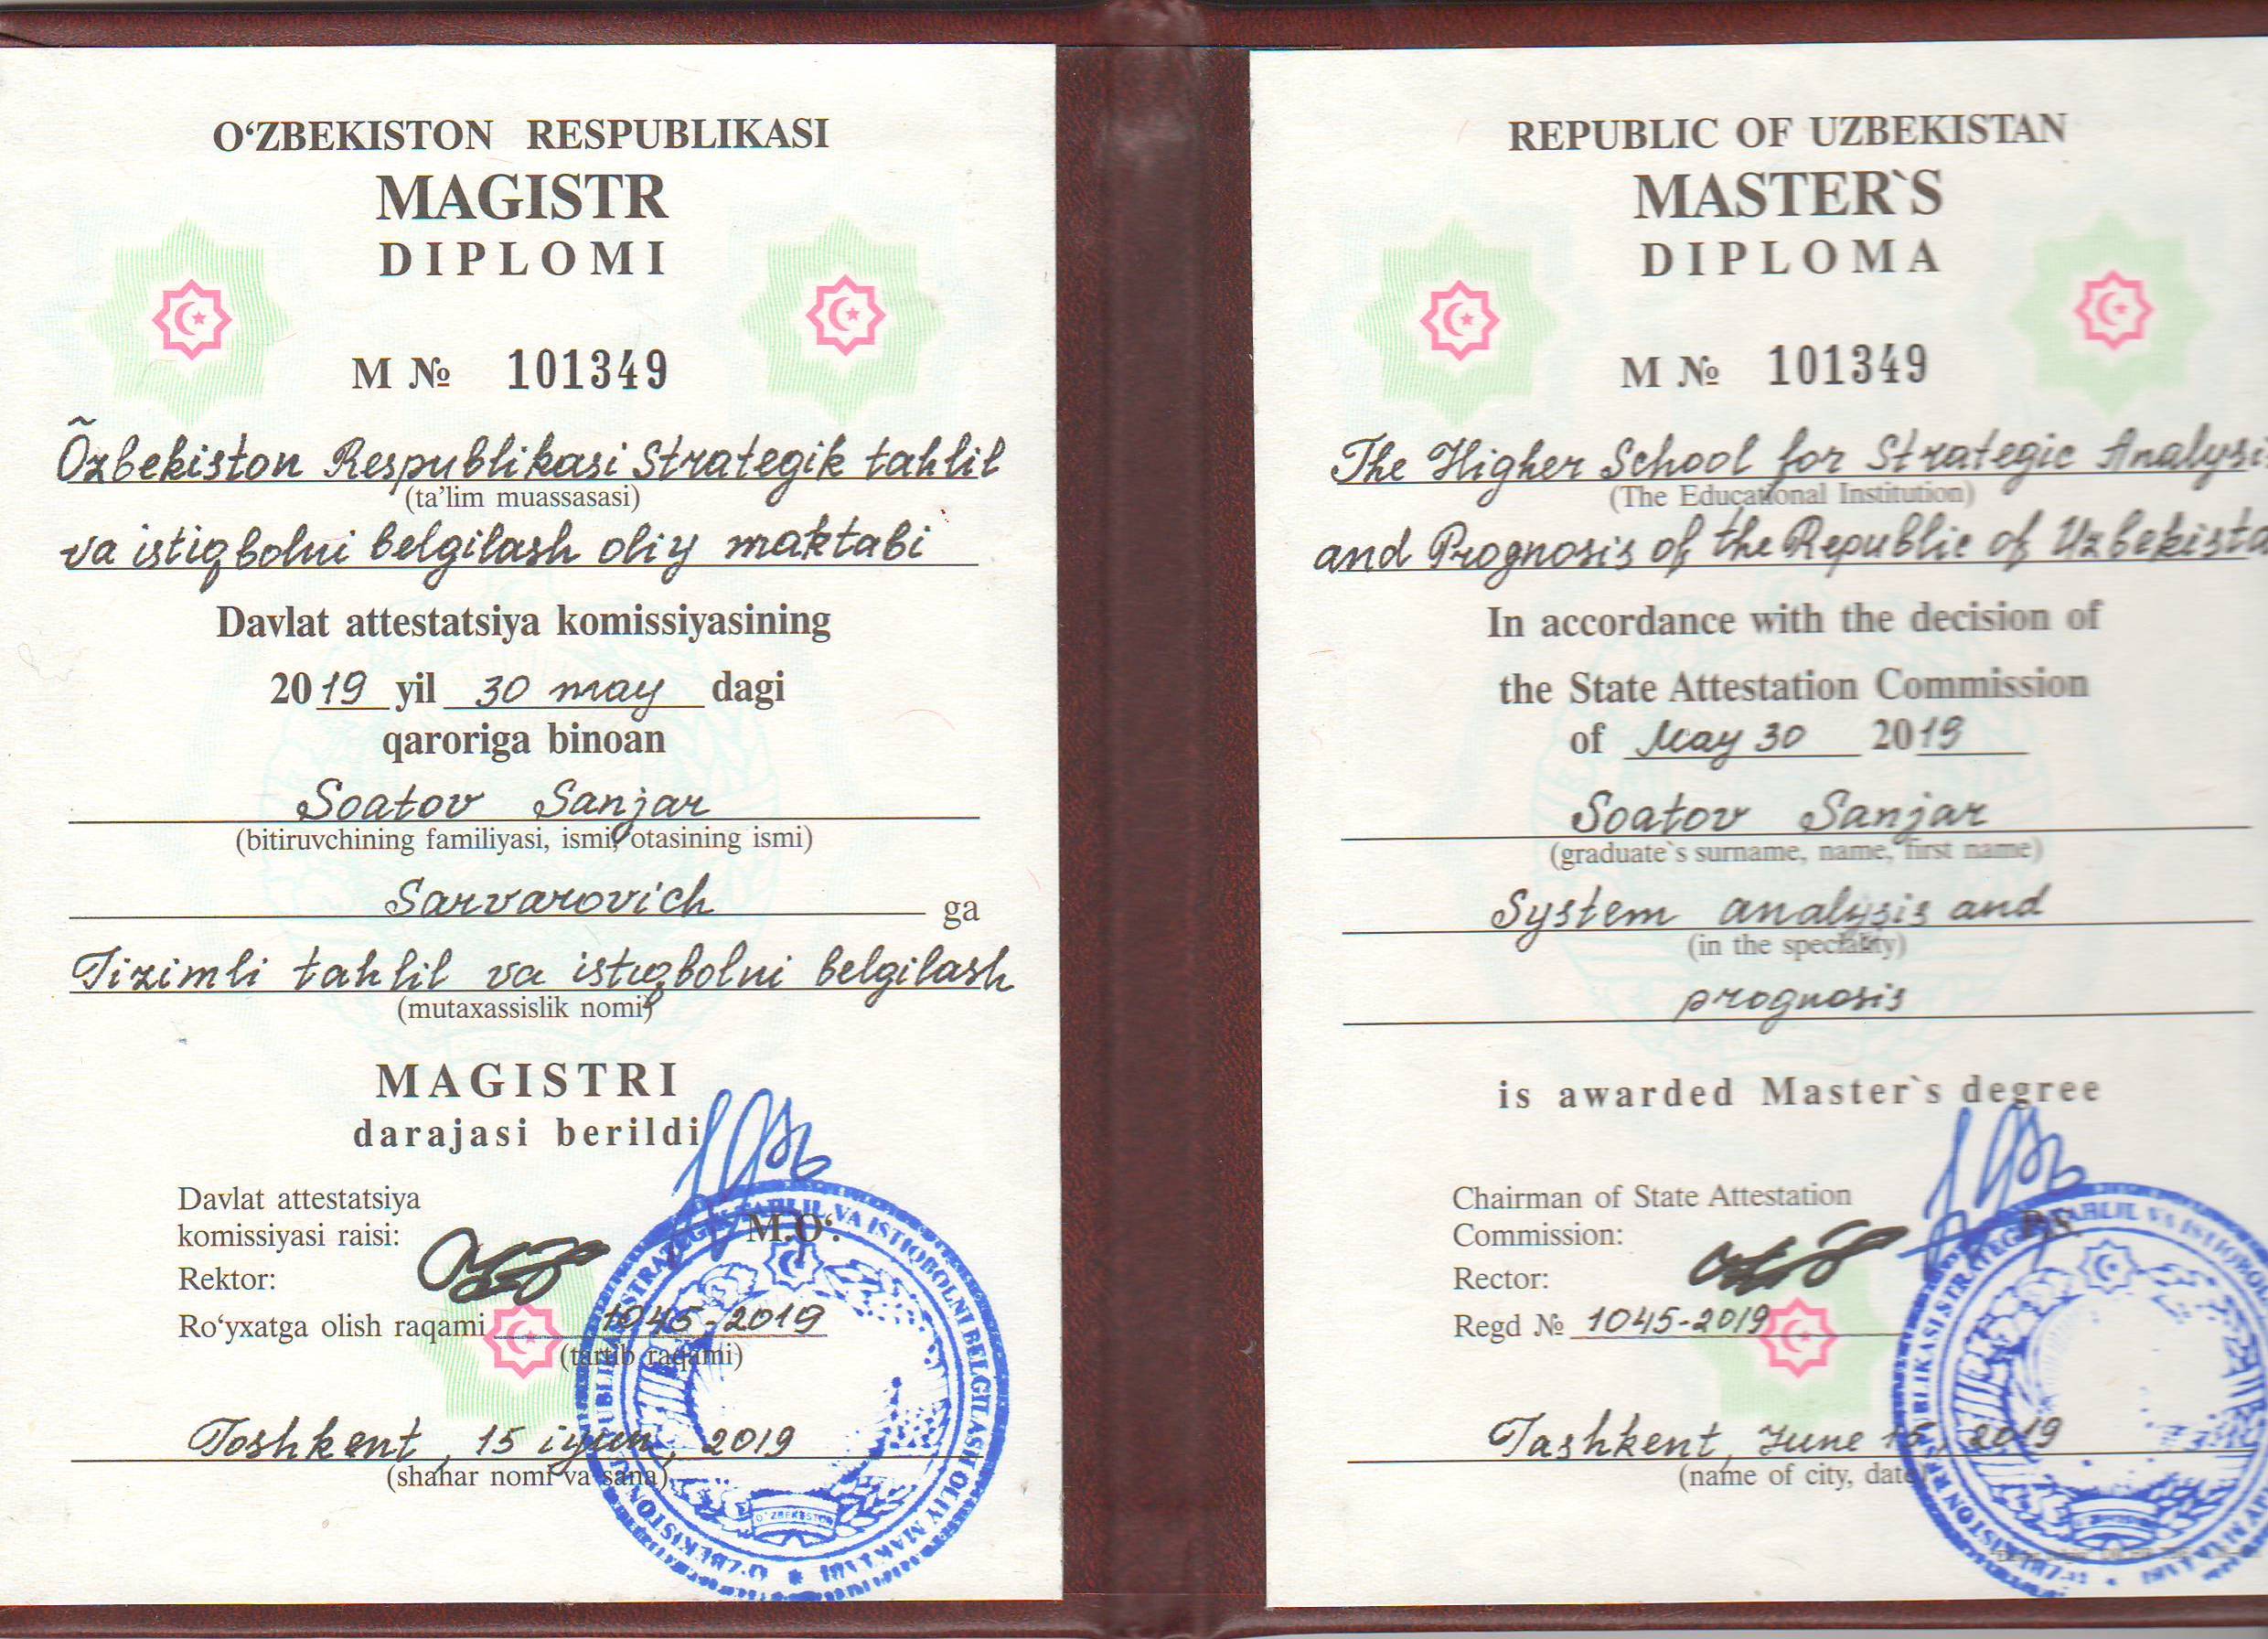 O‘ZBEKISTON RESPUBLIKASI
MAGISTR
DIPLOMI
M № 101349
Õzbekiston Respublikasi Strategik tahlil
(ta’lim muassasasi)
va istiqbolni belgilash oliy maktabi
Davlat attestatsiya komissiyasining
2019 yil 30 may dagi
qaroriga binoan
Soatov Sanjar
(bitiruvchining familiyasi, ismi, otasining ismi)
Sarvarovich ga
Tizimli tahlil va istiqbolni belgilash
(mutaxassislik nomi)
MAGISTRI
darajasi berildi
Davlat attestatsiya
komissiyasi raisi:
M.O‘.
Rektor:
Ro‘yxatga olish raqami 1045-2019
(tartib raqami)
Toshkent, 15 iyun, 2019
(shahar nomi va sana)
O‘ZBEKISTON RESPUBLIKASI STRATEGIK TAHLIL VA ISTIQBOLNI BELGILASH OLIY MAKTABI
O‘ZBEKISTON
REPUBLIC OF UZBEKISTAN
MASTER`S
DIPLOMA
M № 101349
The Higher School for Strategic Analysi
(The Educational Institution)
and Prognosis of the Republic of Uzbekista
In accordance with the decision of
the State Attestation Commission
of May 30 2019
Soatov Sanjar
(graduate`s surname, name, first name)
System analysis and
(in the speciality)
prognosis
is awarded Master`s degree
Chairman of State Attestation
Commission:
Rector:
Regd № 1045-2019
Tashkent, June 15, 2019
(name of city, date)